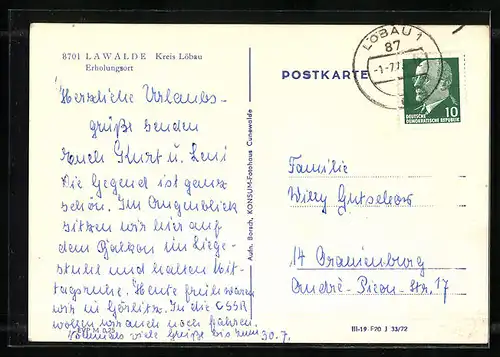 8701 LAWALDE Kreis Löbau
Erholungsort
Herzliche Urlaubs-
grüße senden
Euch Kurt u. Leni
Die Gegend ist ganz
schön. Im Augenblick
sitzen wir hier auf
dem Balkon im Liege-
stuhl und halten Mit-
tagsruhe. Heute früh waren
wir in Görlitz. In die CSSR
wollen wir auch noch fahren.
Nochmals viele Grüße bis zum 30.7.
EVP M 0,25
Aufn. Borsch, KONSUM-Fotohaus Cunewalde
POSTKARTE
LÖBAU 1
87
DEUTSCHE
DEMOKRATISCHE REPUBLIK
10
Familie
Willy Gutschow
14 Oranienburg
André-Picon-Str. 17
III-19-F20 J 33/72